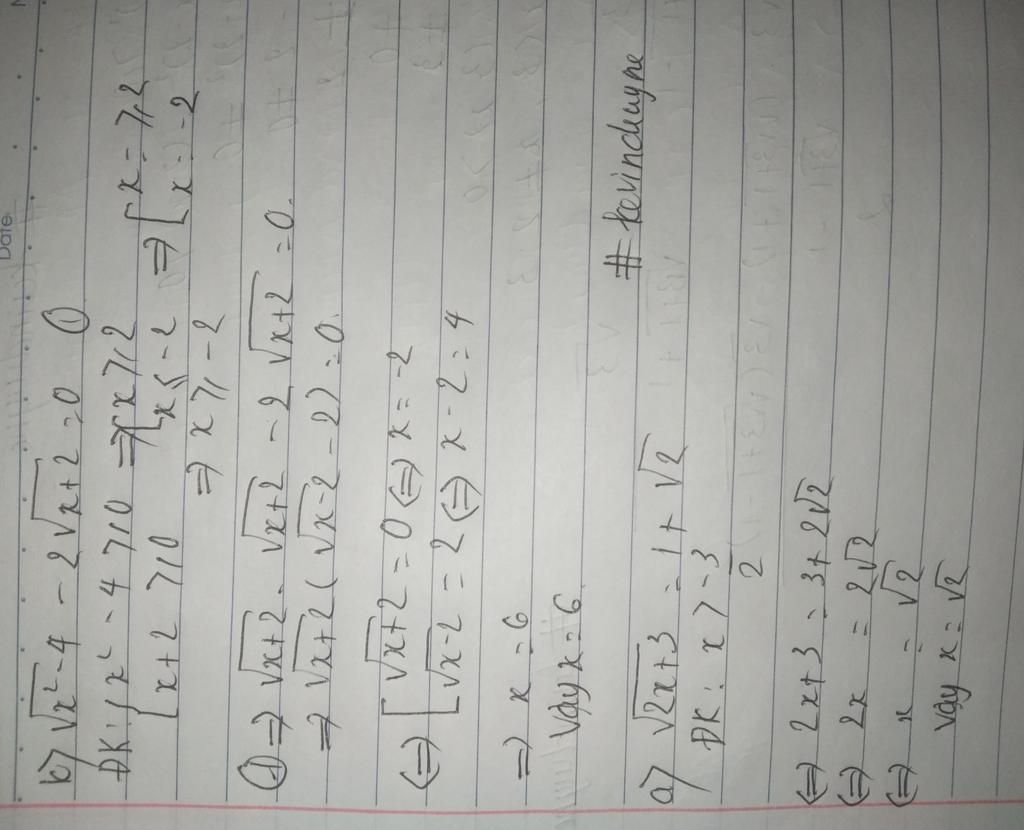 Date.
b) √(x²-4) - 2√(x+2) = 0 ①
ĐK: { x² - 4 ⩾ 0 => [ x ⩾ 2 => [ x = ⩾ 2
x ⩽ -2 x = -2
{ x + 2 ⩾ 0
=> x ⩾ -2
① => √(x+2) . √(x+2) - 2 √(x+2) = 0.
=> √(x+2) ( √(x-2) - 2) = 0.
<=> [ √(x+2) = 0 <=> x = -2
[ √(x-2) = 2 <=> x - 2 = 4
=> x = 6
Vậy x = 6
# kevinchuyne
a) √(2x+3) = 1 + √2
ĐK: x ⩾ -3/2
<=> 2x + 3 = 3 + 2√2
<=> 2x = 2√2
<=> x = √2
Vậy x = √2